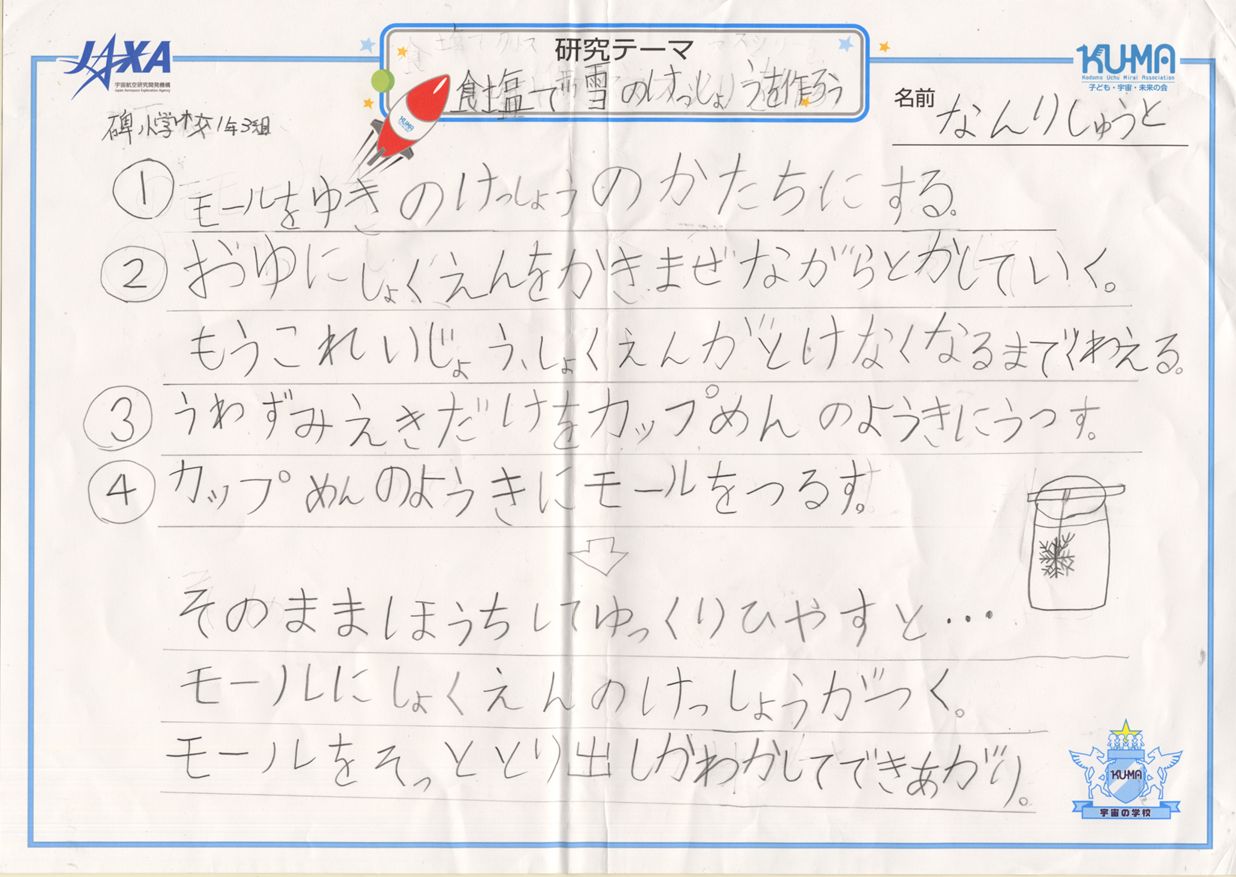 JAXA
宇宙航空研究開発機構
Japan Aerospace Exploration Agency
研究テーマ
食塩で雪のけっしょうを作ろう
KUMA
Kodomo Uchu Mirai Association
子ども・宇宙・未来の会
碑小学校1年3組
名前 なんりしゅうと
KUMA
① モールをゆきのけっしょうのかたちにする。
② おゆにしょくえんをかきまぜながらとかしていく。
もうこれいじょう、しょくえんがとけなくなるまでくわえる。
③ うわずみえきだけをカップめんのようきにうつす。
④ カップめんのようきにモールをつるす。
そのままほうちしてゆっくりひやすと…
モールにしょくえんのけっしょうがつく。
モールをそっととり出しかわかしてできあがり。
KUMA
宇宙の学校